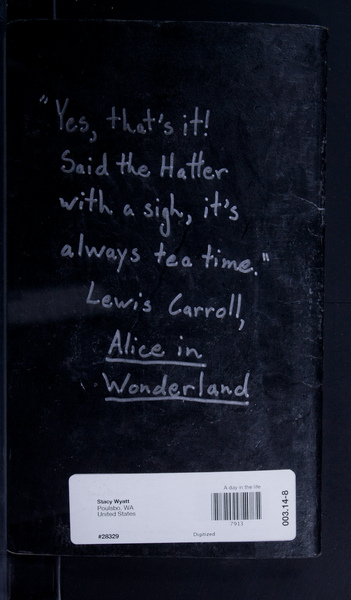 "Yes, that's it!
Said the Hatter
with a sigh, it's
always tea time."
Lewis Carroll,
Alice in
Wonderland
A day in the life
Stacy Wyatt
Poulsbo, WA
United States
7911
003.14-8
#28329
Digitized